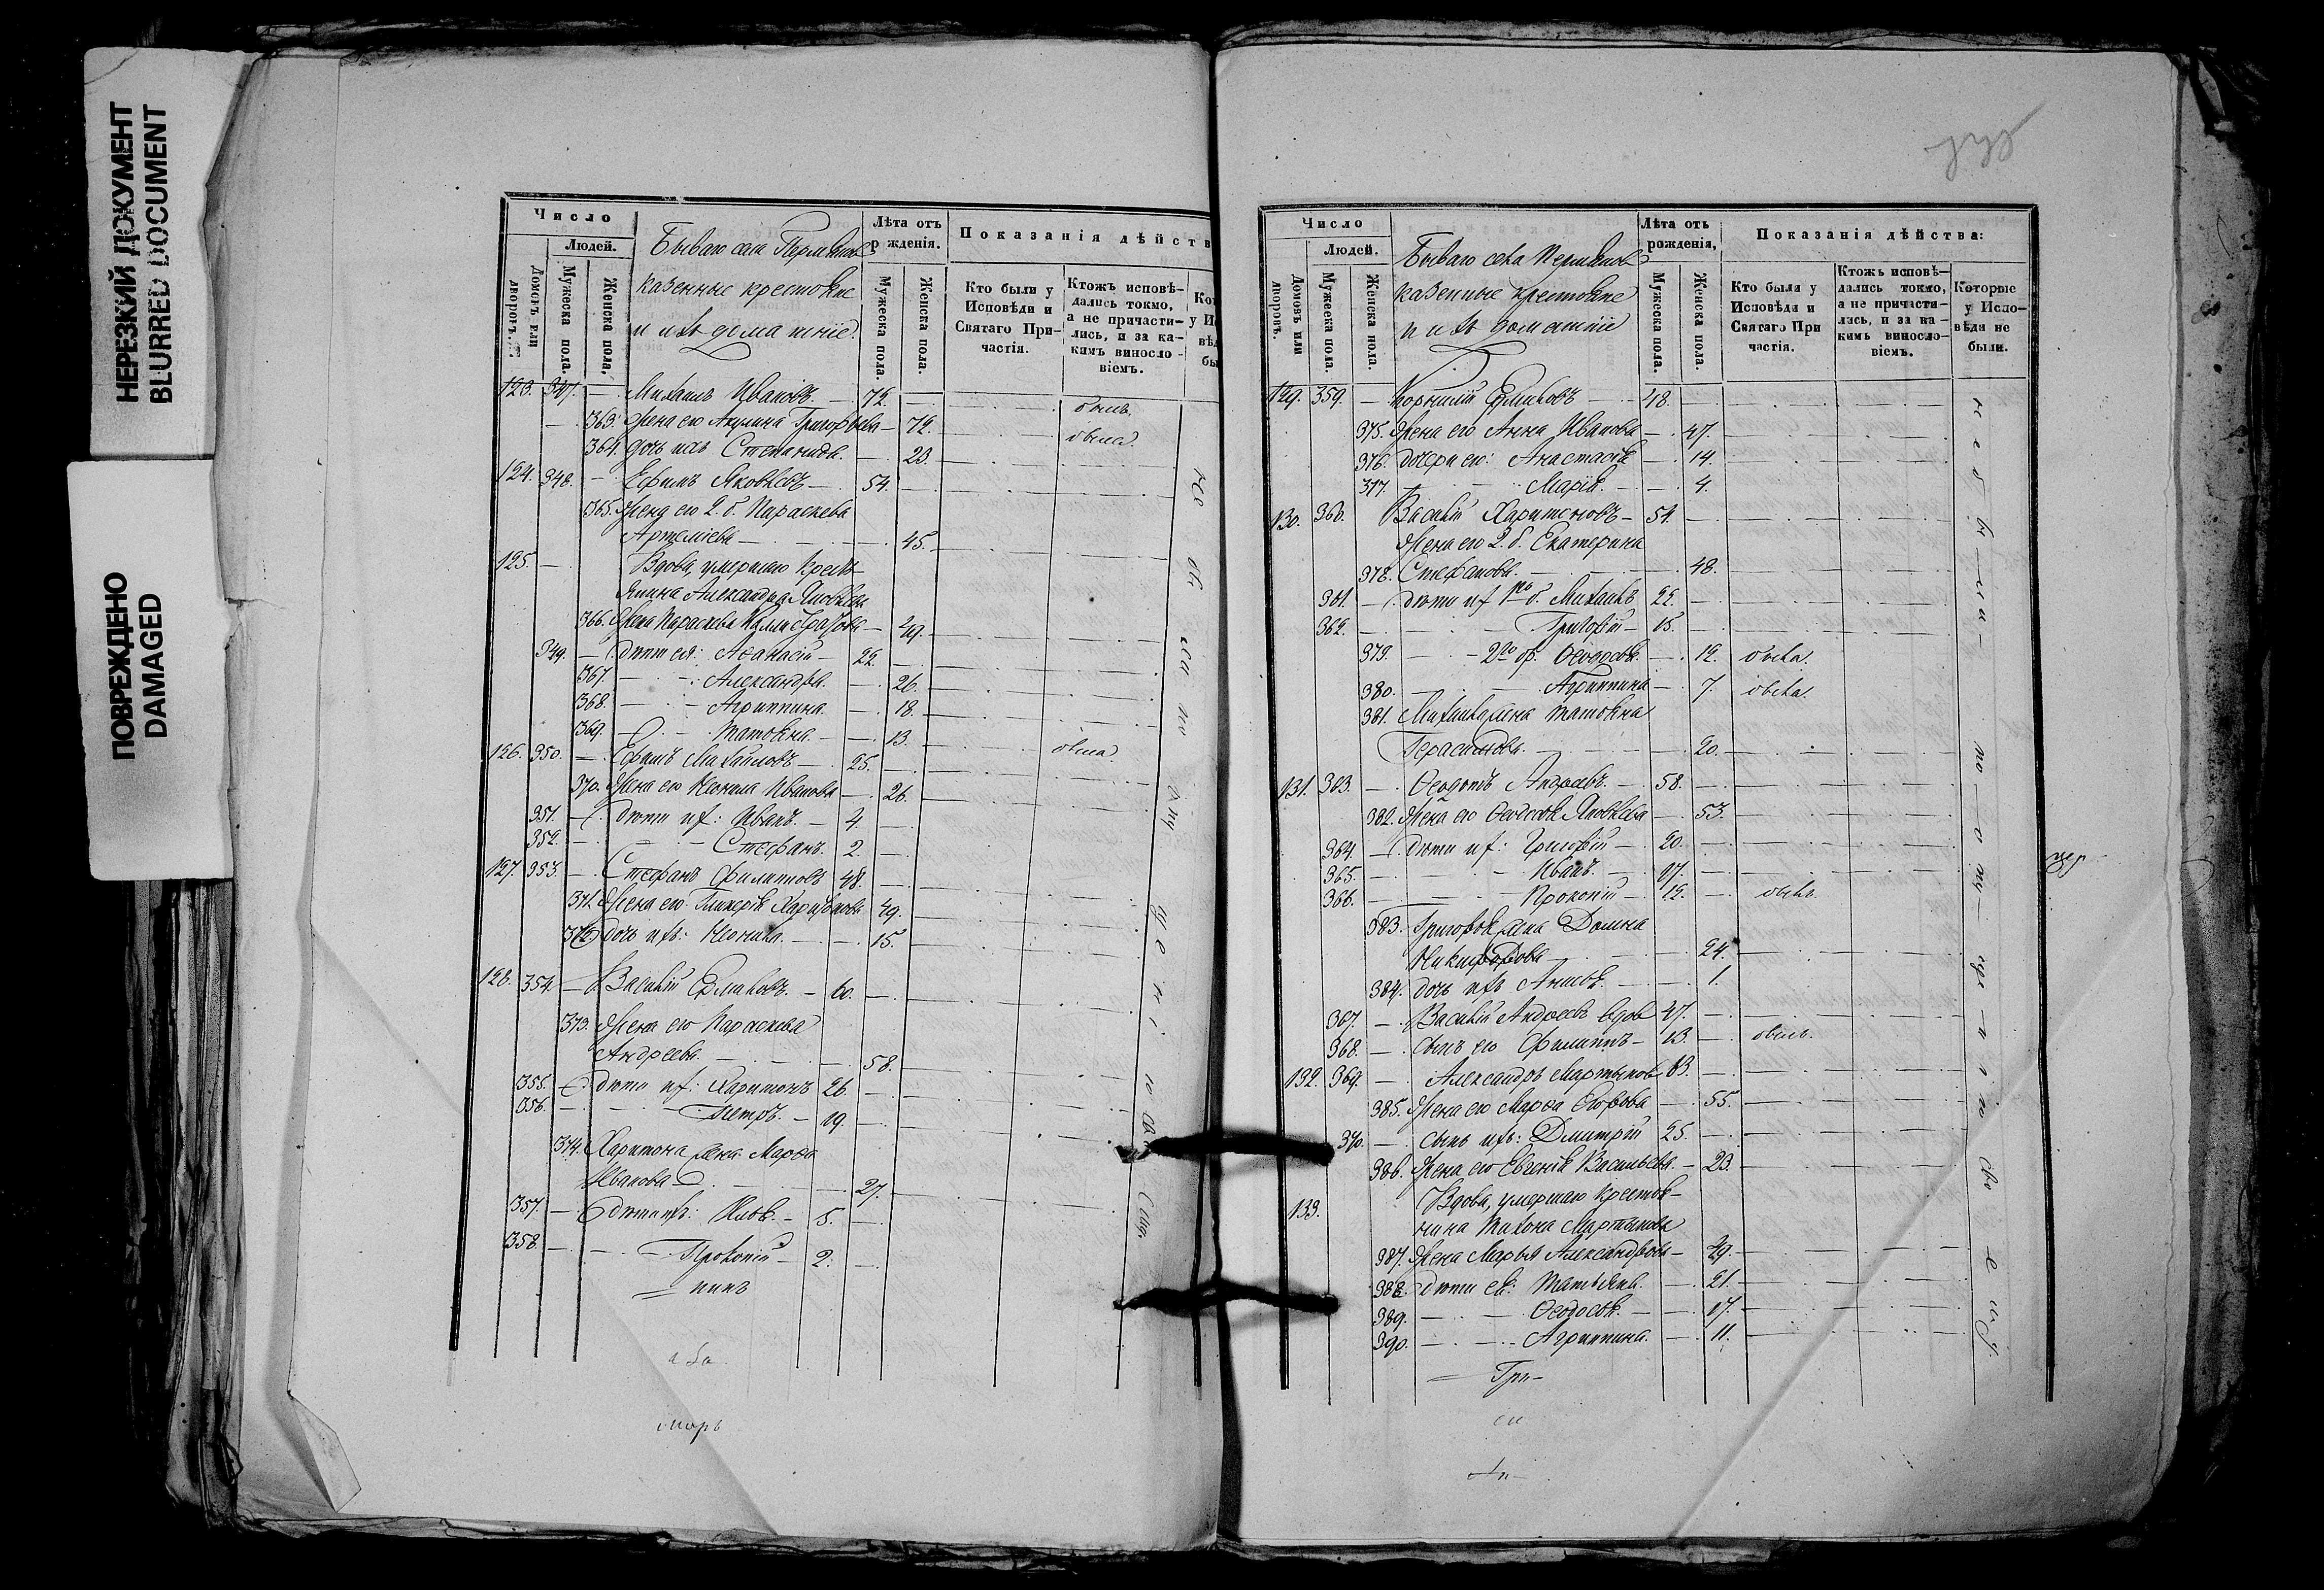 НЕРЕЗКИЙ ДОКУМЕНТ
BLURRED DOCUMENT
ПОВРЕЖДЕНО
DAMAGED
Число
Людей.
Домовъ или дворовъ.
Мужеска пола.
Женска пола.
Бываго села
казенные крестьяне
и ихъ домашніе.
Лѣта отъ рожденія.
Мужеска пола.
Женска пола.
Показанія дѣйств
Кто были у Исповѣди и Святаго Причастія.
Ктожъ исповѣдались токмо, а не причастились, и за какимъ винословіемъ.
123. 347. — Михаилъ Ивановъ. — 72. — былъ.
363. Жена его Акулина Григорьева — 72. — была.
364. Дочь ихъ Степанида. — 23.
124. 348. — Ефимъ Яковлевъ — 54. —
365. Жена его 2. б. Параскева
Артеміева — 45.
125. — Вдова, умершаго кресть-
янина Александра Яковлева
366. Жена Параскева — 49.
349. — Дѣти ея: Аѳанасій — 22. —
367. — Александра. — 26.
368. — Агриппина. — 18.
369. — Татіяна. — 13. — была.
126. 350. — Ефимъ Михайловъ — 25. —
370. Жена его Неонила Иванова — 26.
351. — Дѣти ихъ: Иванъ. — 4. —
352. — Стефанъ. 2. —
127. 353. — Стефанъ Филипповъ 48. —
371. Жена его Гликерія Харитонова 49.
372. Дочь ихъ: Неонила. — 15.
128. 354. — Василій Ермиловъ. — 60. —
373. Жена его Параскева
Андреева. — 58.
355. — Дѣти ихъ: Харитонъ 26. —
356. — Петръ. — 19. —
374. Харитона жена Марѳа
Иванова — 27.
357. — Дѣти ихъ: Илья. — 5. —
358. — Прокопій — 2. —
Число
Людей.
Домовъ или дворовъ.
Мужеска пола.
Женска пола.
Бываго села
казенные крестьяне
и ихъ домашніе
Лѣта отъ рожденія,
Мужеска пола.
Женска пола.
Показанія дѣйства:
Кто были у Исповѣди и Святаго При частія.
Ктожъ исповѣдались токмо, а не причастились, и за какимъ винословіемъ.
Которые у Исповѣди не были.
129. 359. — Корнилій Ермиловъ — 48. —
375. Жена его Анна Иванова — 47.
376. Дочери его: Анастасія — 14.
377. — Марія. — 4.
130. 360. Василій Харитоновъ — 54. —
Жена его 2. б. Екатерина
378. Стефанова. — 48.
361. — Дѣти ихъ 1го б. Михаилъ 22. —
362. — Григорій — 15. —
379. — 2го бр. Ѳеодосія. — 12. была.
380. — Агриппина — 7. была
381. Михаила жена Татіяна
Герасимова. — 20.
131. 363. — Ѳеодотъ Андреевъ. — 58. —
382. Жена его Ѳеодосія Яковлева — 53.
364. — Дѣти ихъ: Григорій — 20. —
365. — Иванъ. — 17. —
366. — Прокопій — 12. — былъ.
383. Григорія жена Домна
Никифорова — 24.
384. Дочь ихъ Анисья. — 1.
367. — Василій Андреевъ вдов 47. —
368. — Сынъ его Филиппъ — 13. — былъ.
132. 369. — Александръ Мартыновъ 63. —
385. Жена его Марѳа Егорова — 55.
370. — Сынъ ихъ: Дмитрій 25. —
386. Жена его Евгенія Васильева. — 23.
133. Вдова, умершаго крестья-
нина Тихона Мартынова
387. Жена Марья Александрова — 49.
388. Дѣти ея: Татьяна. — 21.
389. — Ѳеодосія. — 17.
390. — Агриппина. — 11.
Гри-